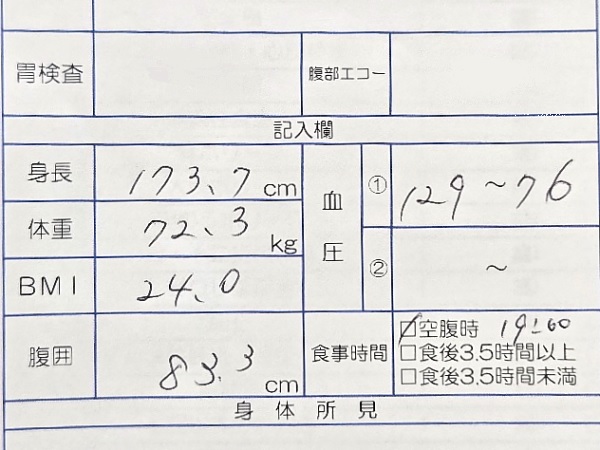 胃検査 腹部エコー
記入欄
身長 173.7 cm 血圧 ① 129 ~ 76
体重 72.3 kg
BMI 24.0 ② ~
腹囲 83.3 cm 食事時間 ☑空腹時 19:00
□食後3.5時間以上
□食後3.5時間未満
身体所見